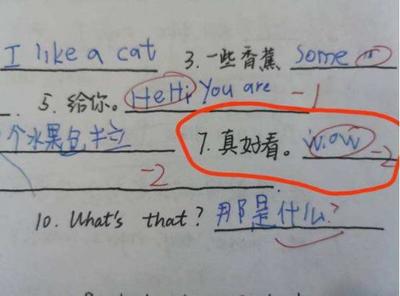 I like a cat 3. 一些香蕉 Some
5. 给你。HeHi You are -1
个水果包 7. 真好看。wow -2
-2
10. What's that? 那是什么?